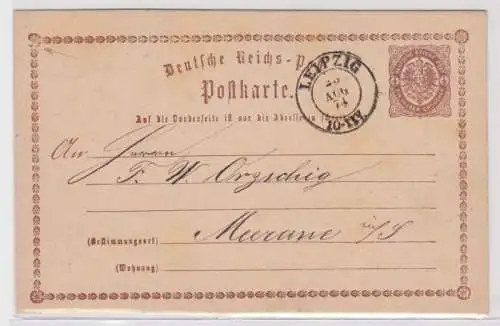 Deutsche Reichs-P
LEIPZIG
AUG
74
10-11V.
Postkarte.
Auf die Vorderseite ist nur die Adresse
An Herrn
F. W. Orzschig
Meerane i/S
(Bestimmungsort)
(Wohnung)